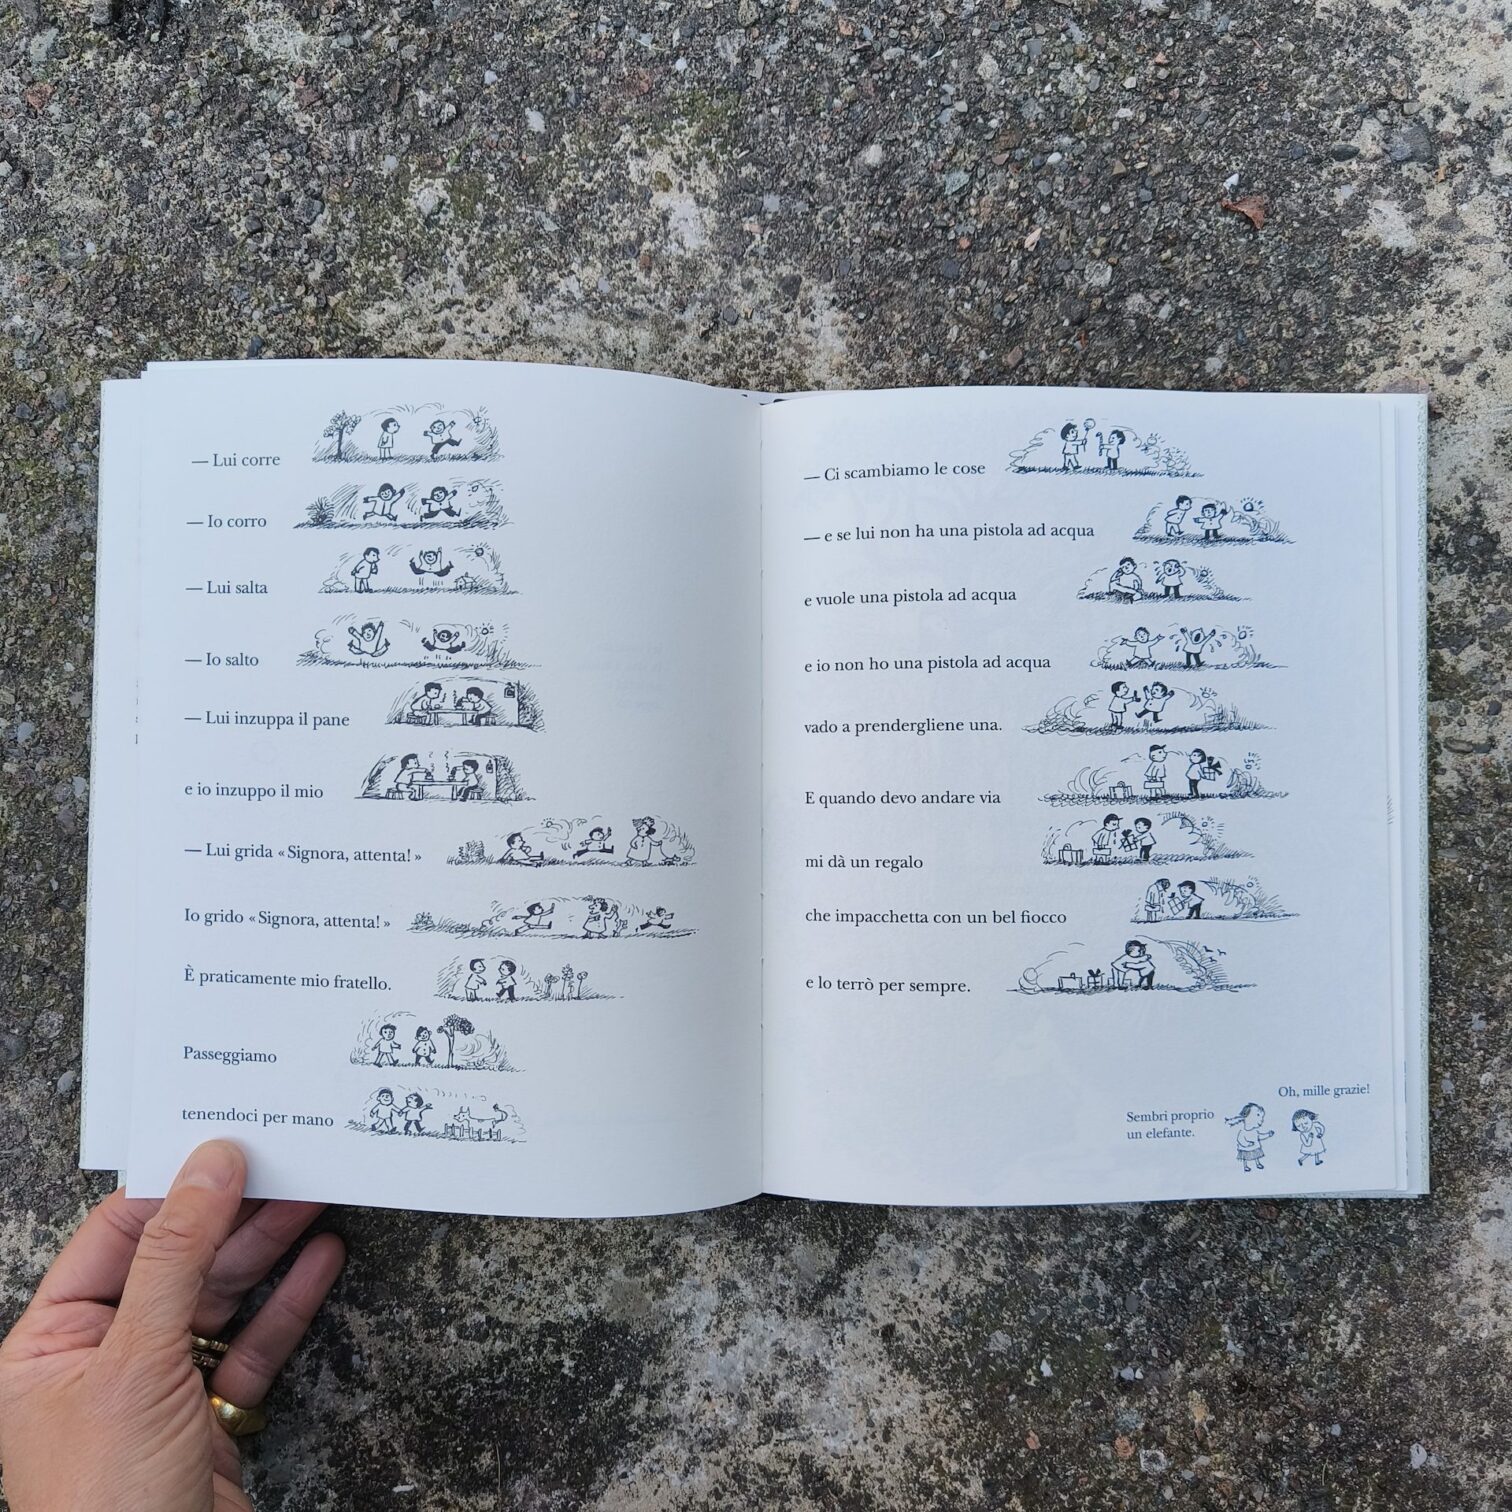 — Lui corre
— Io corro
— Lui salta
— Io salto
— Lui inzuppa il pane
e io inzuppo il mio
— Lui grida « Signora, attenta! »
Io grido « Signora, attenta! »
È praticamente mio fratello.
Passeggiamo
tenendoci per mano
— Ci scambiamo le cose
— e se lui non ha una pistola ad acqua
e vuole una pistola ad acqua
e io non ho una pistola ad acqua
vado a prendergliene una.
E quando devo andare via
mi dà un regalo
che impacchetta con un bel fiocco
e lo terrò per sempre.
Oh, mille grazie!
Sembri proprio
un elefante.